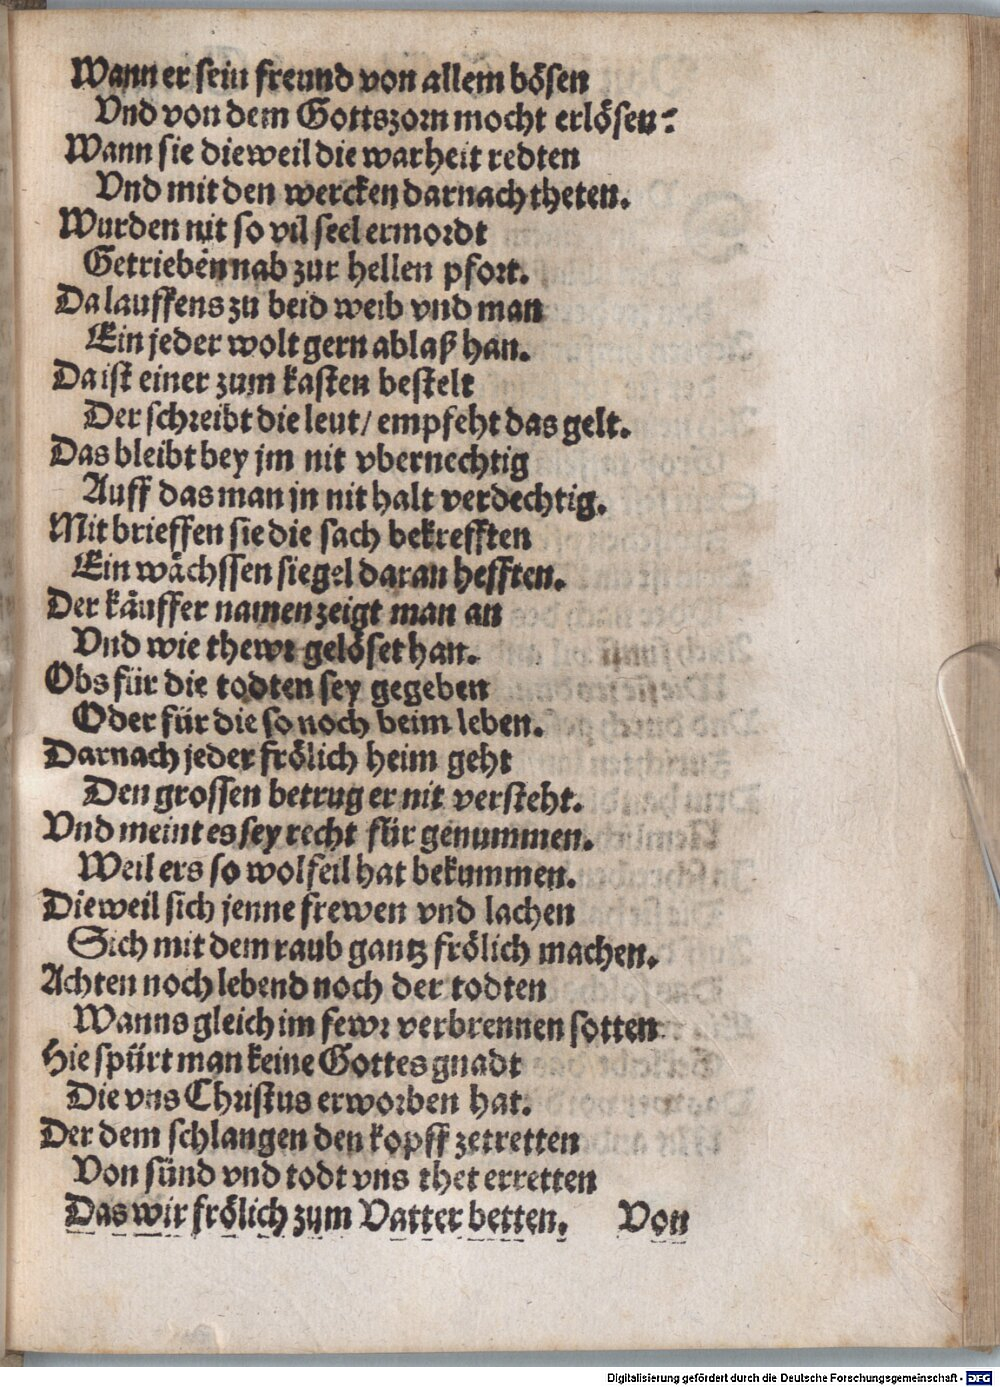 Wann er sein freund von allem bösen
Vnd von dem Gottszorn mocht erlösen?
Wann sie dieweil die warheit redten
Vnd mit den wercken darnach theten.
Wurden nit so vil seel ermordt
Getrieben nab zur hellen pfort.
Da lauffens zu beid weib vnd man
Ein jeder wolt gern ablaß han.
Da ist einer zum kasten bestelt
Der schreibt die leut/ empfeht das gelt.
Das bleibt bey jm nit vbernechtig
Auff das man jn nit halt verdechtig.
Mit brieffen sie die sach bekrefften
Ein wächssen siegel daran hefften.
Der käuffer namen zeigt man an
Vnd wie thewr gelöset han.
Obs für die todten sey gegeben
Oder für die so noch beim leben.
Darnach jeder frölich heim geht
Den grossen betrug er nit versteht.
Vnd meint es sey recht für genummen.
Weil ers so wolfeil hat bekummen.
Dieweil sich jenne frewen vnd lachen
Sich mit dem raub gantz frölich machen.
Achten noch lebend noch der todten
Wanns gleich im fewr verbrennen sotten
Hie spürt man keine Gottes gnadt
Die vns Christus erworben hat.
Der dem schlangen den kopff zetretten
Von sünd vnd todt vns thet erretten
Das wir frölich zum Vatter betten. Von
Digitalisierung gefördert durch die Deutsche Forschungsgemeinschaft - DFG